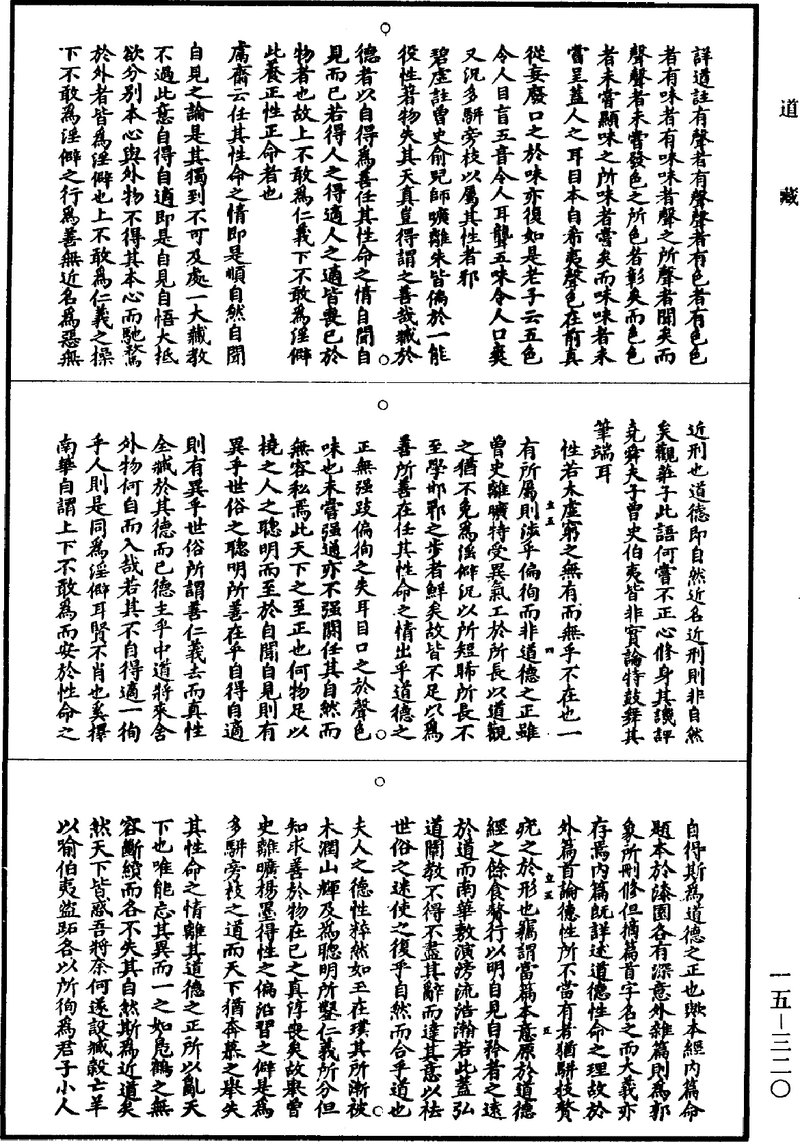 道藏
詳道註有聲者有聲聲者有色者有色色
者有味者有味味者聲之所聲者聞矣而
聲聲者未嘗發色之所色者彰矣而色色
者未嘗顯味之所味者嘗矣而味味者未
嘗呈蓋人之耳目本自希夷聲色在前真
從妄廢口之於味亦復如是老子云五色
令人目盲五音令人耳聾五味令人口爽
又況多駢旁枝以屬其性者邪
碧虛註曾史俞兒師曠離朱皆偏於一能
役性著物失其天真豈得謂之善哉臧於
德者以自得為善任其性命之情自聞自
見而已若得人之得適人之適皆喪已於
物者也故上不敢為仁義下不敢為淫僻
此養正性正命者也
鬳齋云任其性命之情即是順自然自聞
自見之論是其獨到不可及處一大藏教
不過此意自得自適即是自見自悟大抵
欲分別本心與外物不得其本心而馳騖
於外者皆為淫僻也上不敢為仁義之操
下不敢為淫僻之行為善無近名為惡無
近刑也道德即自然近名近刑則非自然
矣觀莊子此語何嘗不正心修身其譏評
堯舜夫子曾史伯夷皆非實論特鼓舞其
筆端耳
性若太虛窮之無有而無乎不在也一
有所屬則淪乎偏徇而非道德之正雖
曾史離曠特受異氣工於所長以道觀
之猶不免為淫僻況以所短睎所長不
至學邯鄲之步者鮮矣故皆不足以為
善所善在任其性命之情出乎道德之
正無强跂偏徇之失耳目口之於聲色
味也未嘗强適亦不强閼任其自然而
無容私焉此天下之至正也何物足以
撓之人之聰明而至於自聞自見則有
異乎世俗之聰明所善在乎自得自適
則有異乎世俗所謂善仁義去而真性
全臧於其德而已德主乎中道將來舍
外物何自而入哉若其不自得適一徇
乎人則是同為淫僻耳賢不肖也奚擇
南華自謂上下不敢為而安於性命之
自得斯為道德之正也歟本經內篇命
題本於漆園各有深意外雜篇則為郭
象所刪修但摘篇首字名之而大義亦
存焉內篇既詳述道德性命之理故於
外篇首論德性所不當有者猶駢枝贅
疣之於形也竊謂當篇本意原於道德
經之餘食贅行以明自見自矜者之遠
於道而南華敷演滂流浩瀚若此蓋弘
道闡教不得不盡其辭而達其意以祛
世俗之迷使之復乎自然而合乎道也
夫人之德性粹然如玉在璞其所漸被
木潤山輝及為聰明所鑿仁義所分但
知求善於物在己之真淳喪矣故舉曾
史離曠楊墨得性之偏沿習之僻是為
多駢旁枝之道而天下猶奔慕之舉失
其性命之情離其道德之正所以亂天
下也唯能忘其異而一之如鳧鶴之無
容斷續而各不失其自然斯為近道矣
然天下皆惑吾將奈何遂設臧穀亡羊
以喻伯夷盜跖各以所徇為君子小人
一五－三二〇